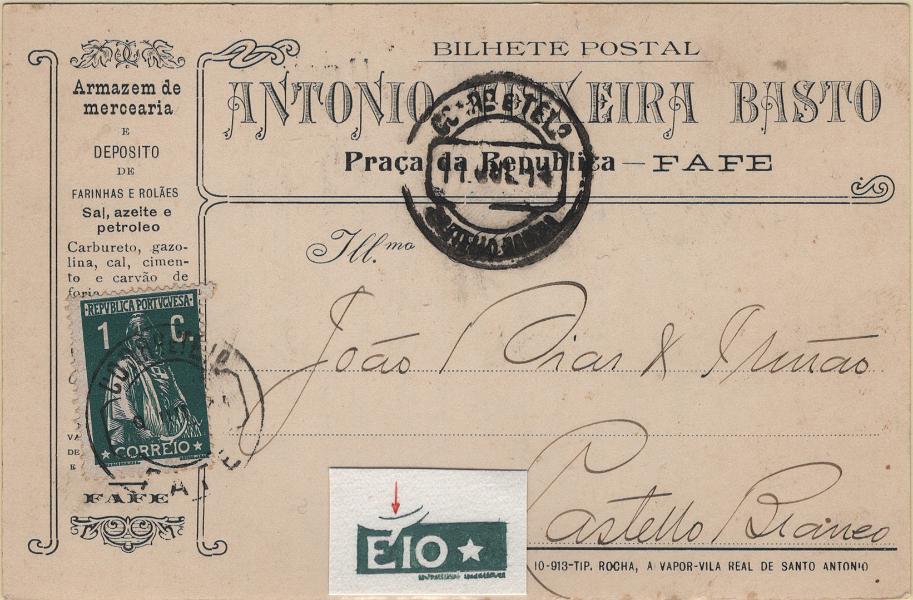 BILHETE POSTAL
ANTONIO TEIXEIRA BASTO
Praça da Republica — FAFE
Armazem de
mercearia
E
DEPOSITO
DE
FARINHAS E ROLÃES
Sal, azeite e
petroleo
Carbureto, gazo-
lina, cal, cimen-
to e carvão de
forja
REPVBLICA PORTVGVESA
1 C.
CORREIO
FAFE
Ill.mo
João Dias & Irmão
Castello Branco
EIO
10-913-TIP. ROCHA, A VAPOR-VILA REAL DE SANTO ANTONIO